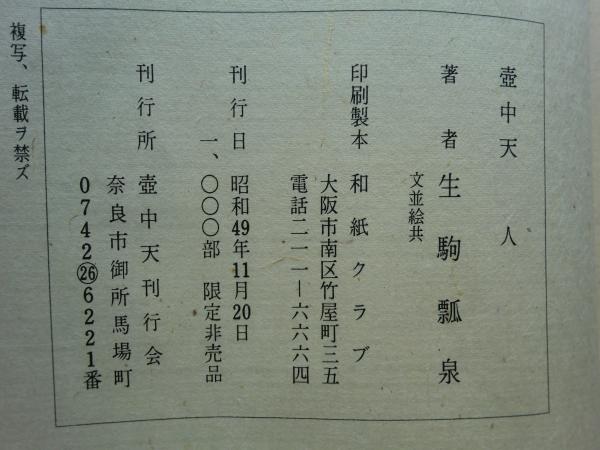 壺中天 人
著者 生駒瓢泉
文並絵共
印刷製本 和紙クラブ
大阪市南区竹屋町三五
電話二一一―六六六四
刊行日 昭和49年11月20日
一、〇〇〇部 限定非売品
刊行所 壺中天刊行会
奈良市御所馬場町
0742㉖6221番
複写、転載ヲ禁ズ